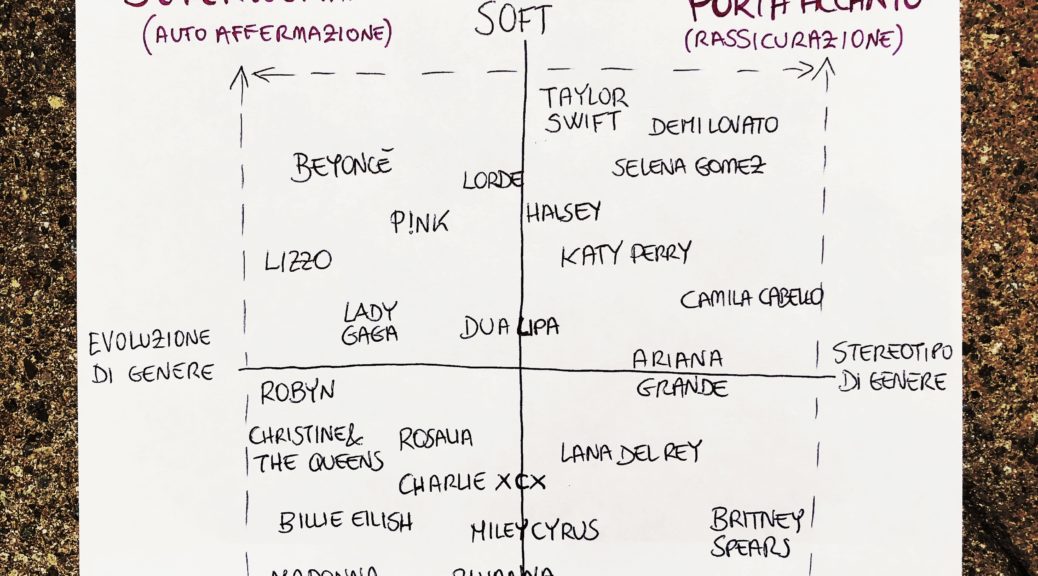 PORTA ACCANTO
SOFT
(AUTO AFFERMAZIONE)
(RASSICURAZIONE)
TAYLOR
SWIFT
DEMI LOVATO
BEYONCÈ
LORDE
SELENA GOMEZ
P!NK
HALSEY
LIZZO
KATY PERRY
CAMILA CABELLO
LADY
GAGA
DUA LIPA
EVOLUZIONE
DI GENERE
ARIANA
GRANDE
STEREOTIPO
DI GENERE
ROBYN
CHRISTINE &
THE QUEENS
ROSALIA
LANA DEL REY
CHARLIE XCX
BILLIE EILISH
MILEY CYRUS
BRITNEY
SPEARS
MADONNA
RIHANNA